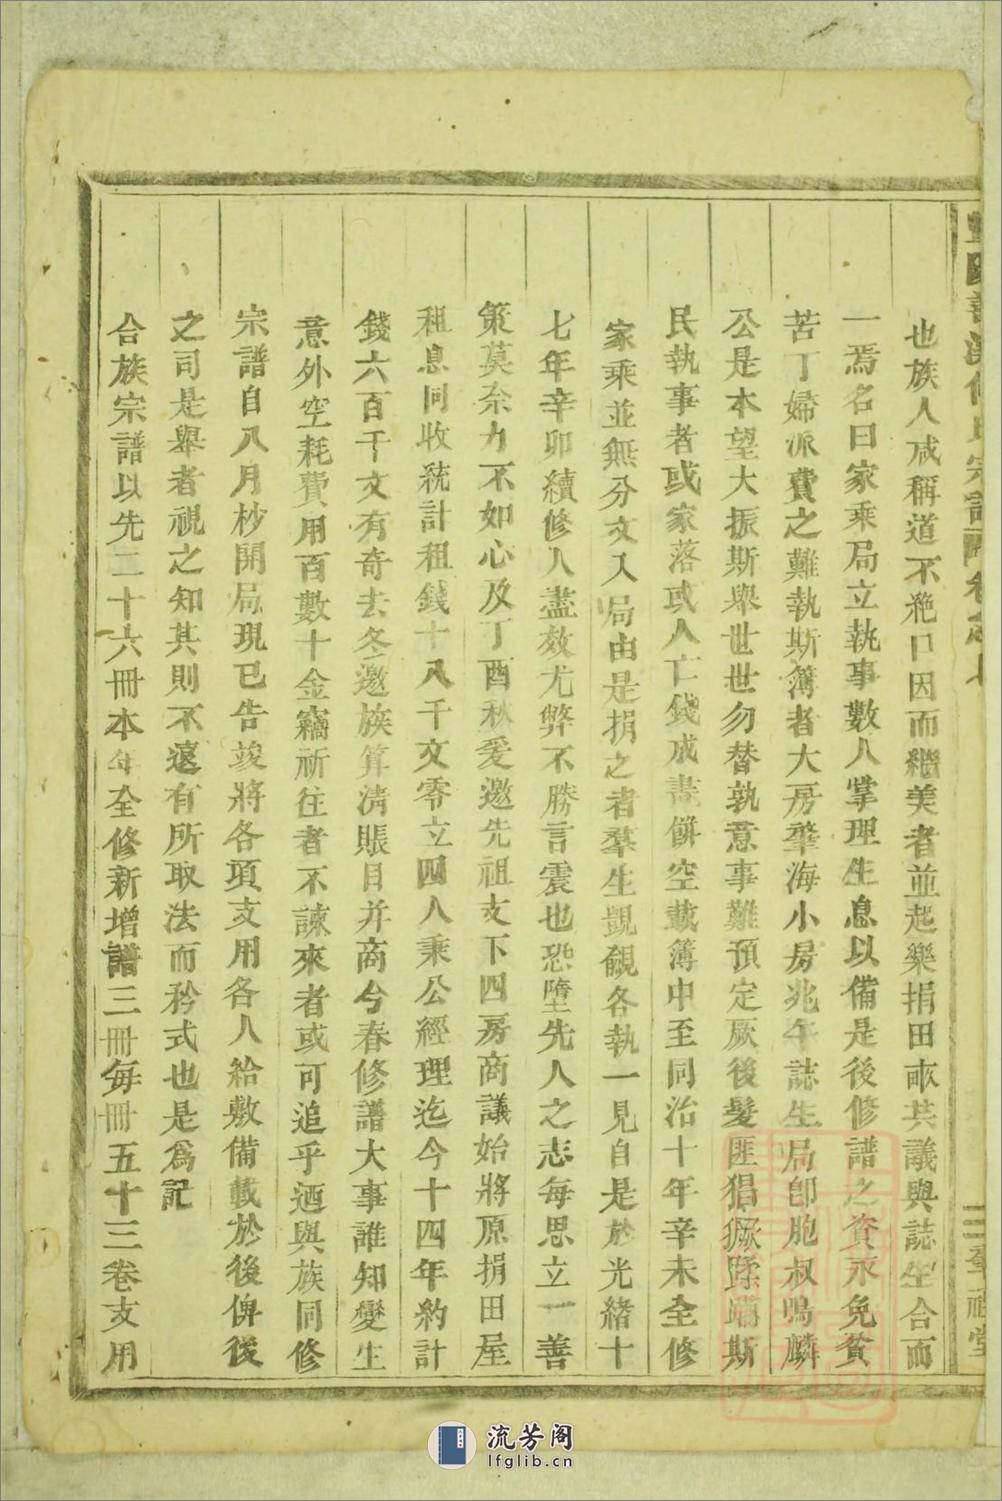 宗譜
也族人咸稱道不絶口因而繼美者並起樂捐田畝共議與誌生合而
一焉名曰家乘局立執事數人掌理生息以備是後修譜之資永免貧
苦丁婦派費之難執斯簿者大房肇海小房兆午誌生局卽胞叔鳴麟
公是本望大振斯舉世世勿替孰意事難預定厥後髮匪猖獗蹂躪斯
民執事者或家落或人亡錢成畫餠空載簿中至同治十年辛未全修
家乘並無分文入局由是捐之者羣生覬覦各執一見自是於光緒十
七年辛卯續修人盡效尤弊不勝言震也恐墮先人之志每思立一善
策莫奈力不如心及丁酉秋爰邀先祖支下四房商議始將原捐田屋
租息同收統計租錢十八千文零立四人秉公經理迄今十四年約計
錢六百千文有奇去冬邀族算清賬目并商今春修譜大事誰知變生
意外空耗費用百數十金竊祈往者不諫來者或可追乎迺與族同修
宗譜自八月杪開局現已告竣將各項支用各人給敷備載於後俾後
之司是舉者視之知其則不遠有所取法而矜式也是爲記
合族宗譜以先二十六冊本年全修新增譜三冊每冊五十三卷支用
流芳阁
lfglib.cn